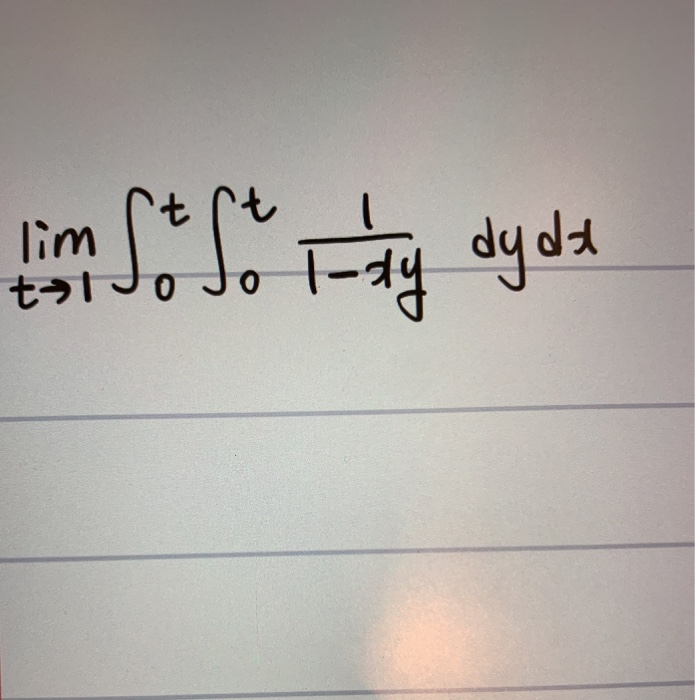 lim t→1 ∫₀ᵗ ∫₀ᵗ 1/(1-xy) dy dx